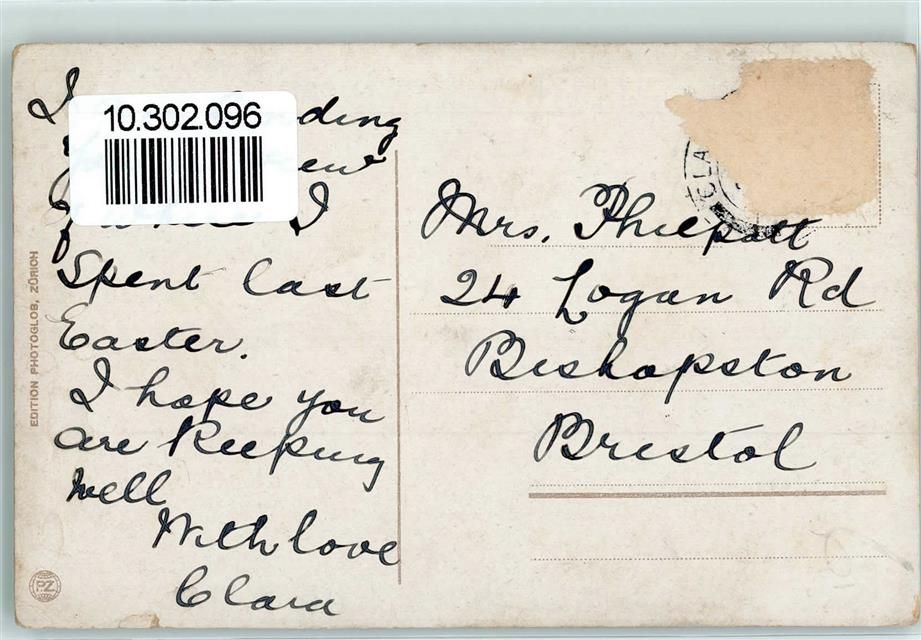 10.302.096
I
I
Spent last
Easter.
I hope you
are keeping
well
With love
Clara
Mrs. Philpott
24 Logan Rd
Bishopston
Bristol
EDITION PHOTOGLOB, ZÜRICH
PZ